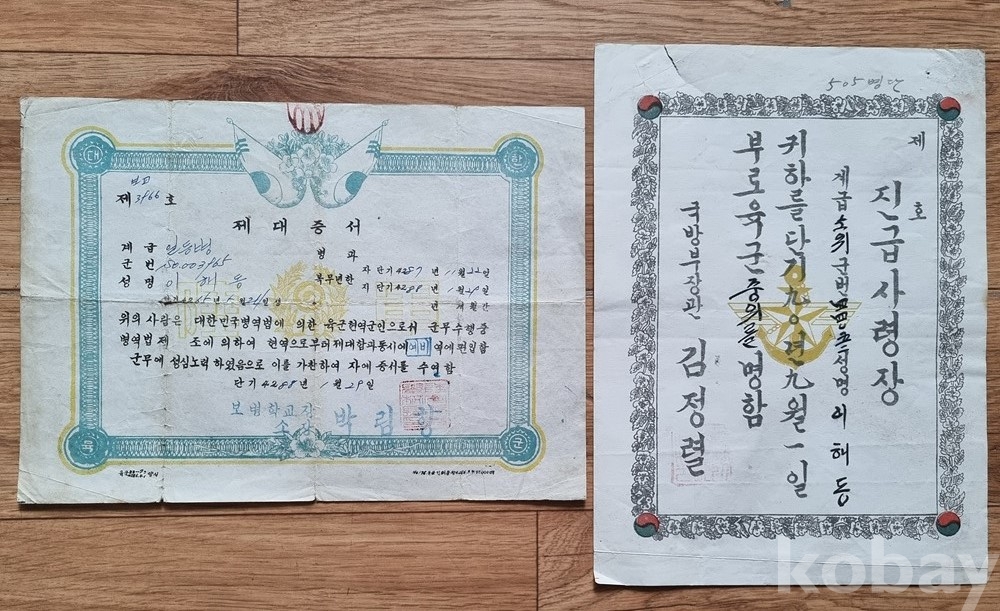 대
한
보고
제 3966 호
제대증서
계급 일등병
병과
군번
성명 이해동
복무년한
자 단기 4287년 11월 22일
지 단기 4288년 1월 29일
년 개월간
위의 사람은 대한민국병역법에 의한 육군현역군인으로서 군무수행중
병역법 제 조에 의하여 현역으로부터 제대함과동시에 예비 역에 편입함
군무에 성심노력 하였음으로 이를 가찬하여 자에 증서를 수여함
단기 4288년 1월 29일
보병학교장
소장 박림항
육
군
505병단
제 호
진급사령장
계급 소위 군번 성명 리해동
귀하를 단기 九월 一일
부로 육군 중위를 명함
국방부장관 김정렬
kobay